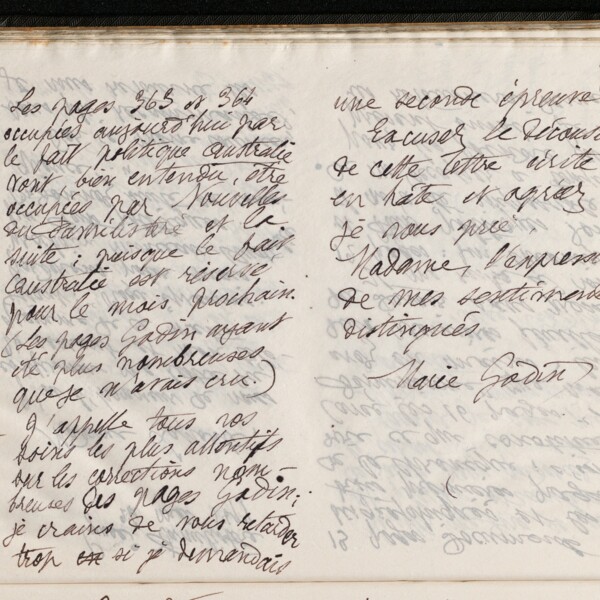 Les pages 363 et 364
occupées aujourd'hui par
le fait politique Australie
vont, bien entendu, être
occupées par Nouvelles
du Familistère et la
suite ; puisque le fait
Australie est réservé
pour le mois prochain.
(Les pages Godin ayant
été plus nombreuses
que je n'avais cru.)
J'appelle tous vos
soins les plus attentifs
sur les corrections nom-
breuses des pages Godin ;
je crains de vous retarder
trop si je demandais
une seconde épreuve
Excusez le décousu
de cette lettre écrite
en hâte et agréez
je vous prie
Madame, l'express
de mes sentiments
distingués
Marie Godin